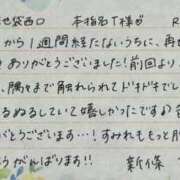 池袋西口 本指名T様 R
から1週間経たないうちに、再
ありがとうございました!前回より
、隅々まで触れられてドキドキでし
るぬるしていて嬉しかったですわ
ざいます…!すみれももっと
うがんばります!! 新條